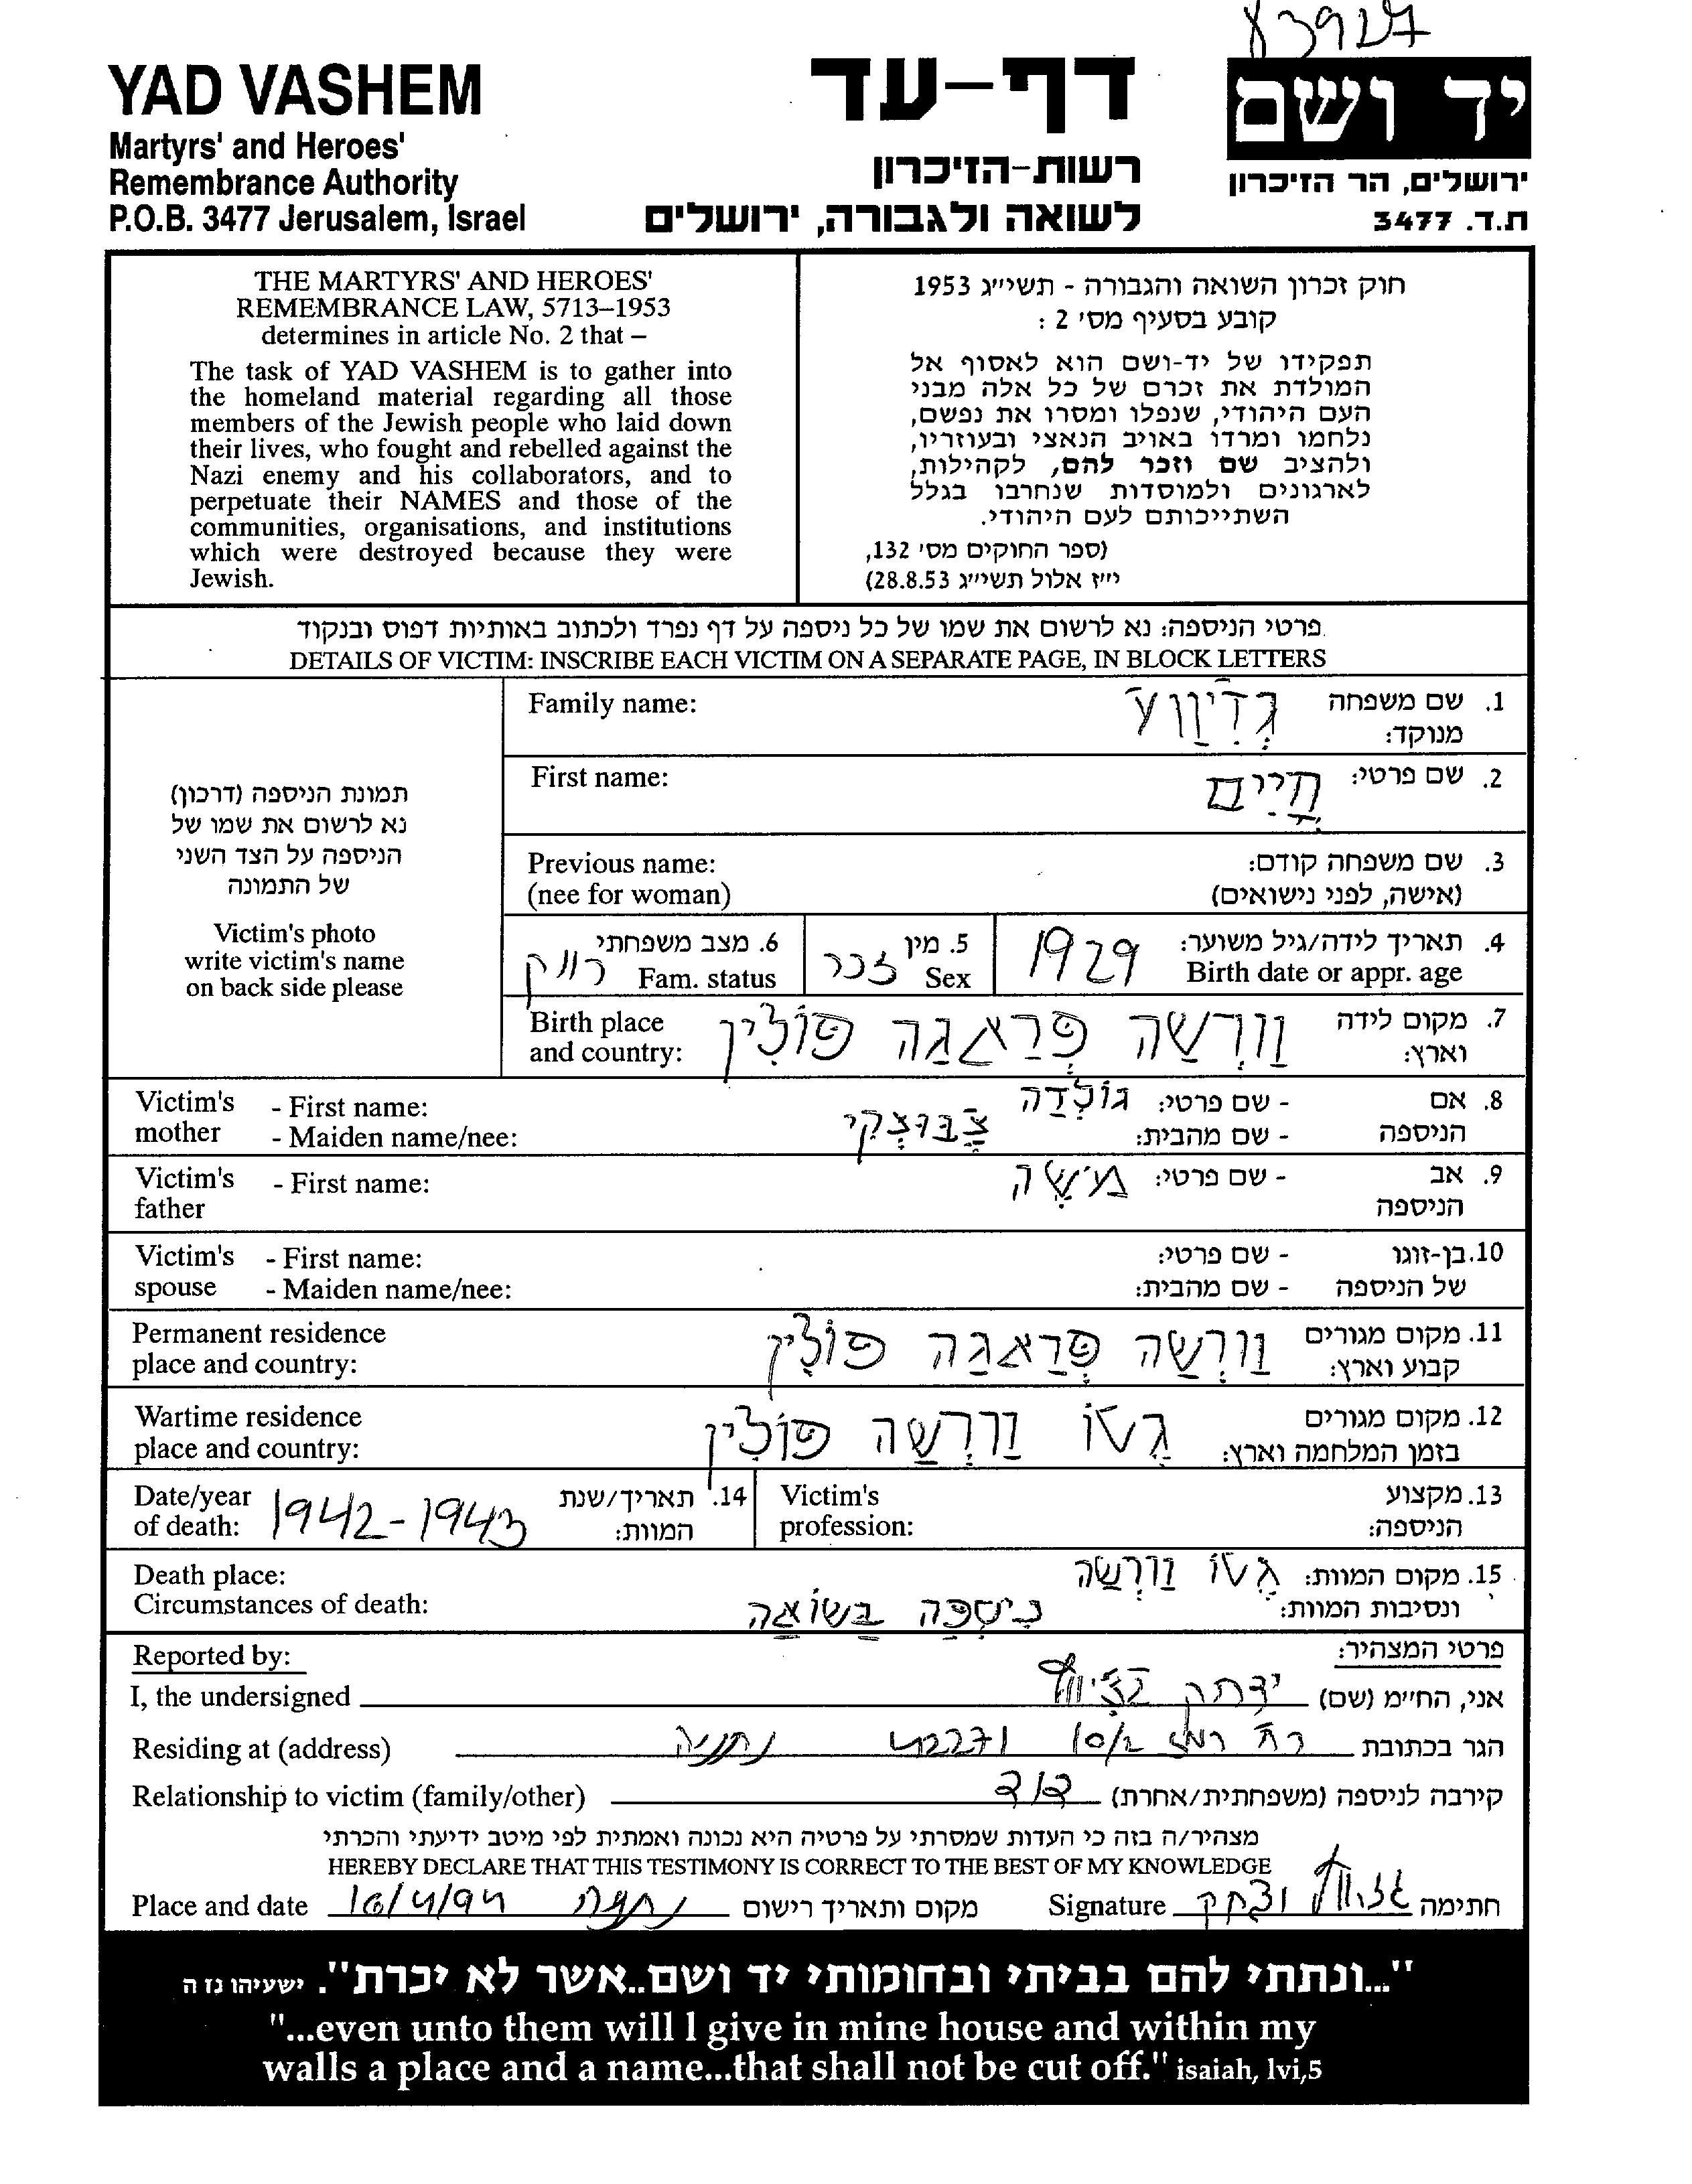 YAD VASHEM
Martyrs' and Heroes'
Remembrance Authority
P.O.B. 3477 Jerusalem, Israel
דף-עד
רשות-הזיכרון
לשואה ולגבורה, ירושלים
יד ושם
ירושלים, הר הזיכרון
ת.ד. 3477
THE MARTYRS' AND HEROES'
REMEMBRANCE LAW, 5713–1953
determines in article No. 2 that –
The task of YAD VASHEM is to gather into
the homeland material regarding all those
members of the Jewish people who laid down
their lives, who fought and rebelled against the
Nazi enemy and his collaborators, and to
perpetuate their NAMES and those of the
communities, organisations, and institutions
which were destroyed because they were
Jewish.
חוק זכרון השואה והגבורה - תשי״ג 1953
קובע בסעיף מס׳ 2 :
תפקידו של יד-ושם הוא לאסוף אל
המולדת את זכרם של כל אלה מבני
העם היהודי, שנפלו ומסרו את נפשם,
נלחמו ומרדו באויב הנאצי ובעוזריו,
ולהציב שם וזכר להם, לקהילות,
לארגונים ולמוסדות שנחרבו בגלל
השתייכותם לעם היהודי.
(ספר החוקים מס׳ 132,
י״ז אלול תשי״ג 28.8.53)
פרטי הניספה: נא לרשום את שמו של כל ניספה על דף נפרד ולכתוב באותיות דפוס ובנקוד
DETAILS OF VICTIM: INSCRIBE EACH VICTIM ON A SEPARATE PAGE, IN BLOCK LETTERS
תמונת הניספה (דרכון)
נא לרשום את שמו של
הניספה על הצד השני
של התמונה
Victim's photo
write victim's name
on back side please
1. שם משפחה גְדִיוַוע Family name:
מנוקד:
2. שם פרטי: חַיִים First name:
3. שם משפחה קודם: Previous name:
(אישה, לפני נישואים) (nee for woman)
4. תאריך לידה/גיל משוער: 1929 5. מין זכר 6. מצב משפחתי רווק
Birth date or appr. age Sex Fam. status
7. מקום לידה וַרְשָה פְרַאגָה פוֹלִין Birth place
וארץ: and country:
8. אם - שם פרטי: גוֹלְדָה Victim's - First name:
הניספה - שם מהבית: mother - Maiden name/nee:
9. אב - שם פרטי: משֶה Victim's - First name:
הניספה father
10. בן-זוגו - שם פרטי: Victim's - First name:
של הניספה - שם מהבית: spouse - Maiden name/nee:
11. מקום מגורים וַרְשָה פְרַאגָה פוֹלִין Permanent residence
קבוע וארץ: place and country:
12. מקום מגורים גֶטוֹ וַרְשָה פוֹלִין Wartime residence
בזמן המלחמה וארץ: place and country:
13. מקצוע Victim's
הניספה: profession:
14. תאריך/שנת 1942-1943 Date/year
המוות: of death:
15. מקום המוות: גֶטוֹ וַרְשָה Death place:
ונסיבות המוות: נִיסְפָּה בַּשוֹאָה Circumstances of death:
פרטי המצהיר: Reported by:
אני, החי״מ (שם) יצחק I, the undersigned
הגר בכתובת נתניה Residing at (address)
קירבה לניספה (משפחתית/אחרת) דוד Relationship to victim (family/other)
מצהיר/ה בזה כי העדות שמסרתי על פרטיה היא נכונה ואמתית לפי מיטב ידיעתי והכרתי
HEREBY DECLARE THAT THIS TESTIMONY IS CORRECT TO THE BEST OF MY KNOWLEDGE
חתימה יצחק Signature מקום ותאריך רישום נתניה 16/4/94 Place and date
"...ונתתי להם בביתי ובחומותי יד ושם..אשר לא יכרת". ישעיהו נז ה
"...even unto them will I give in mine house and within my
walls a place and a name...that shall not be cut off." isaiah, lvi,5